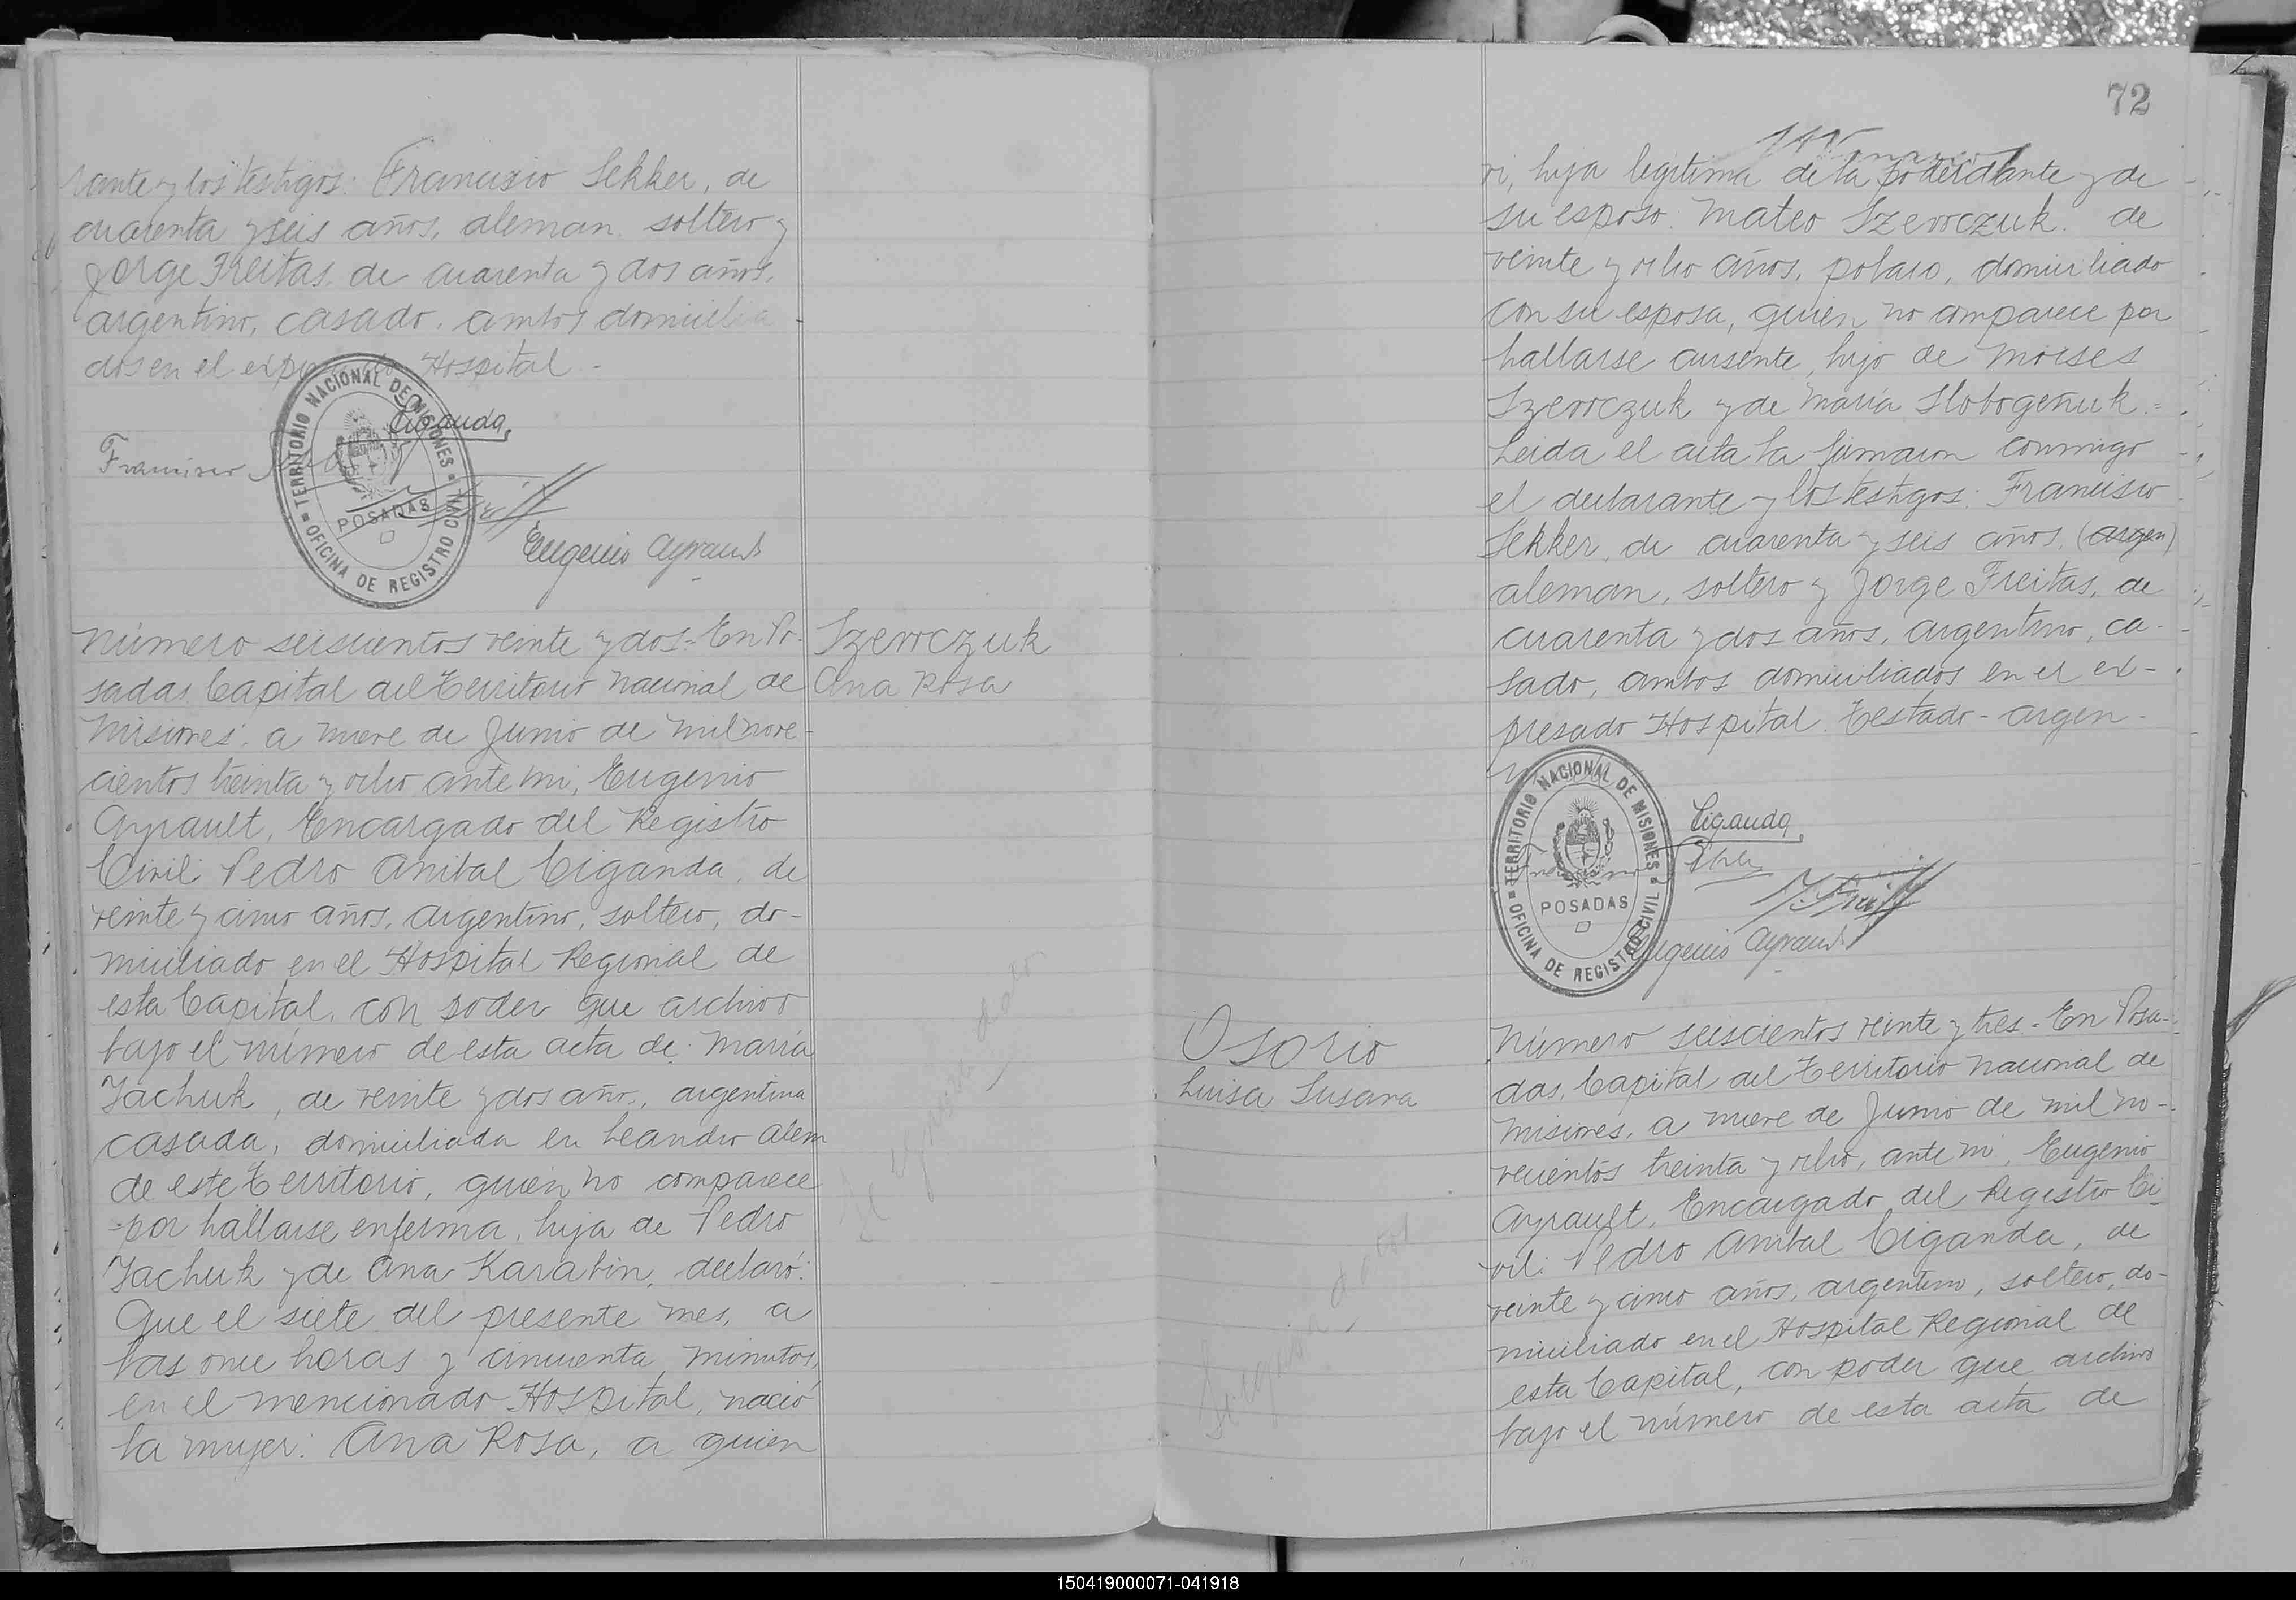 rante y los testigos: Francisco Sekker, de
cuarenta y seis años, aleman, soltero y
Jorge Freitas, de cuarenta y dos años,
argentino, casado, ambos domicilia
dos en el Hospital.-
TERRITORIO NACIONAL DE MISIONES
OFICINA DE REGISTRO CIVIL
POSADAS
Ciganda
Francisco
Eugenio Ayrault
Número seiscientos veinte y dos.- En Po-
sadas, Capital del Territorio Nacional de
Misiones, a nueve de Junio de mil nove-
cientos treinta y ocho, ante mi, Eugenio
Ayrault, Encargado del Registro
Civil: Pedro Anibal Ciganda, de
veinte y cinco años, argentino, soltero, do-
miciliado en el Hospital Regional de
esta Capital, con poder que archivo
bajo el número de esta acta de: María
Jachuk, de veinte y dos año, argentina
casada, domiciliada en Leandro Alem
de este Territorio, quien no comparece
por hallarse enferma, hija de Pedro
Jachuk y de Ana Karabin, declaró:
Que el siete del presente mes, a
las once horas y cincuenta minutos,
en el mencionado Hospital, nació
la mujer: Ana Rosa, a quien
Szewczuk
Ana Rosa
72
vi, hija legitima de la poderdante y de
su esposo: Mateo Szewczuk, de
veinte y ocho años, polaco, domiciliado
con su esposa, quien no comparece por
hallarse ausente, hijo de Moises
Szewczuk y de María Slobogeñuk.=
Leida el acta la firmaron conmigo
el declarante y los testigos: Francisco
Sekker, de cuarenta y seis años, (argen)
aleman, soltero y Jorge Freitas, de
cuarenta y dos años, argentino, ca-
sado, ambos domiciliados en el ex-
presado Hospital. Testado- argen-
TERRITORIO NACIONAL DE MISIONES
OFICINA DE REGISTRO CIVIL
POSADAS
Ciganda
Eugenio Ayrault
Osorio
Luisa Susana
Número seiscientos veinte y tres.- En Posa-
das, Capital del Territorio Nacional de
Misiones, a nueve de Junio de mil no-
vecientos treinta y ocho, ante mi, Eugenio
Ayrault, Encargado del Registro Ci-
vil: Pedro Anibal Ciganda, de
veinte y cinco años, argentino, soltero, do-
miciliado en el Hospital Regional de
esta Capital, con poder que archivo
bajo el número de esta acta de
150419000071-041918